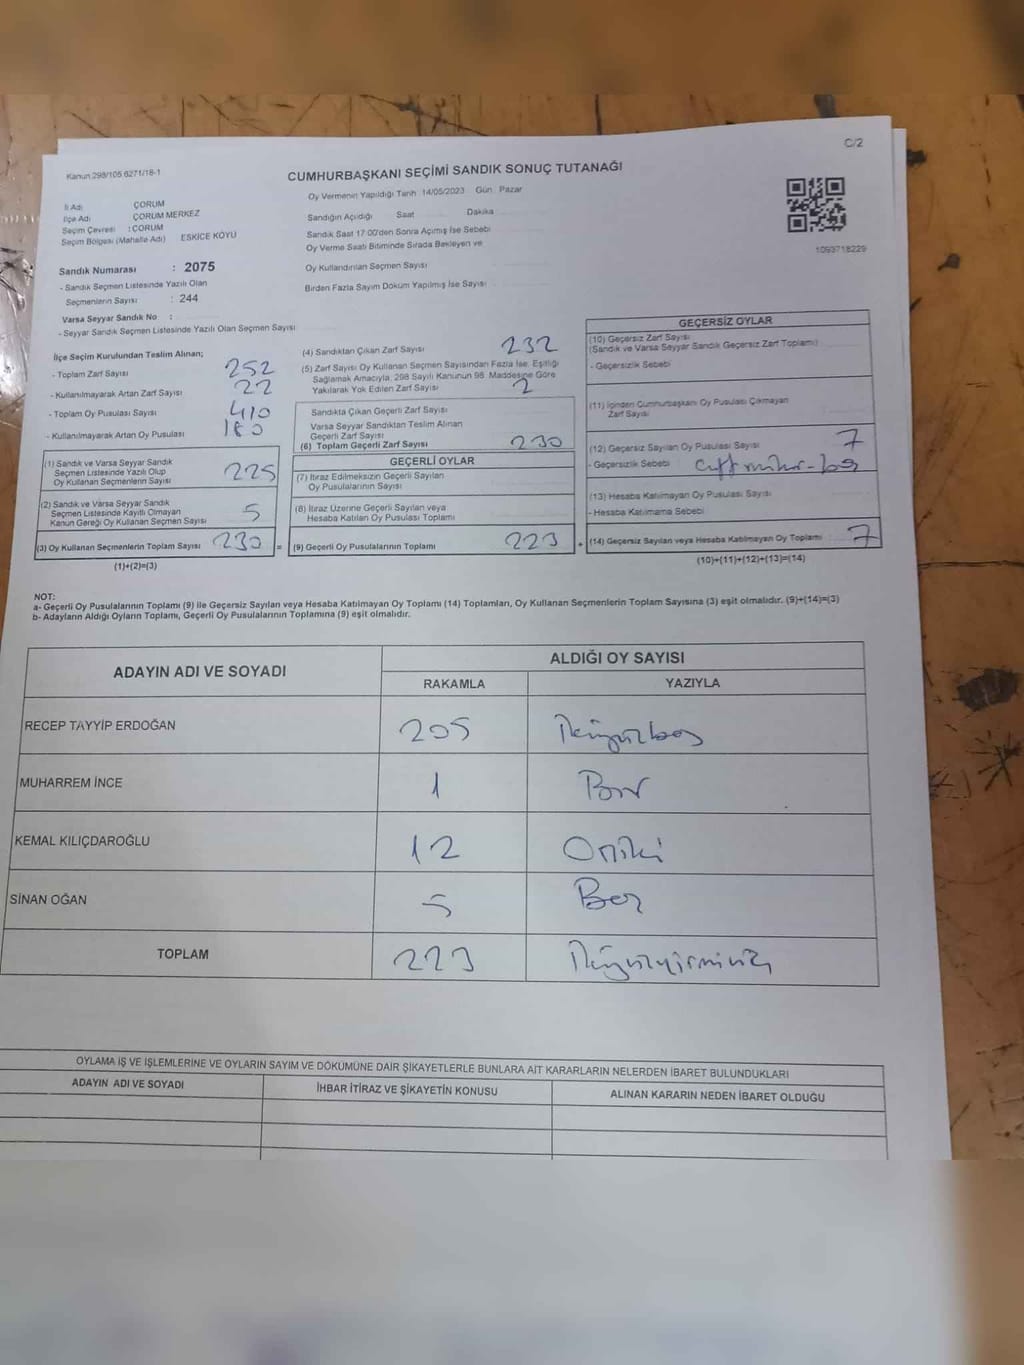 C/2
Kanun 298/105 6271/18-1
CUMHURBAŞKANI SEÇİMİ SANDIK SONUÇ TUTANAĞI
İl Adı ÇORUM
İlçe Adı ÇORUM MERKEZ
Seçim Çevresi : ÇORUM
Seçim Bölgesi (Mahalle Adı) ESKİCE KÖYÜ
Oy Vermenin Yapıldığı Tarih 14/05/2023 Gün Pazar
Sandığın Açıldığı Saat Dakika
Sandık Saat 17:00'den Sonra Açılmış İse Sebebi
Oy Verme Saati Bitiminde Sırada Bekleyen ve
Oy Kullandırılan Seçmen Sayısı
Birden Fazla Sayım Döküm Yapılmış İse Sayısı
1093718229
Sandık Numarası : 2075
- Sandık Seçmen Listesinde Yazılı Olan
Seçmenlerin Sayısı : 244
Varsa Seyyar Sandık No :
- Seyyar Sandık Seçmen Listesinde Yazılı Olan Seçmen Sayısı
İlçe Seçim Kurulundan Teslim Alınan;
- Toplam Zarf Sayısı 252
- Kullanılmayarak Artan Zarf Sayısı 22
- Toplam Oy Pusulası Sayısı 410
- Kullanılmayarak Artan Oy Pusulası 180
(1) Sandık ve Varsa Seyyar Sandık
Seçmen Listesinde Yazılı Olup
Oy Kullanan Seçmenlerin Sayısı 225
(2) Sandık ve Varsa Seyyar Sandık
Seçmen Listesinde Kayıtlı Olmayan
Kanun Gereği Oy Kullanan Seçmen Sayısı 5
(3) Oy Kullanan Seçmenlerin Toplam Sayısı 230 =
(1)+(2)=(3)
(4) Sandıktan Çıkan Zarf Sayısı 232
(5) Zarf Sayısı Oy Kullanan Seçmen Sayısından Fazla İse, Eşitliği
Sağlamak Amacıyla, 298 Sayılı Kanunun 98. Maddesine Göre
Yakılarak Yok Edilen Zarf Sayısı 2
Sandıkta Çıkan Geçerli Zarf Sayısı
Varsa Seyyar Sandıktan Teslim Alınan
Geçerli Zarf Sayısı
(6) Toplam Geçerli Zarf Sayısı 230
GEÇERLİ OYLAR
(7) İtiraz Edilmeksizin Geçerli Sayılan
Oy Pusulalarının Sayısı
(8) İtiraz Üzerine Geçerli Sayılan veya
Hesaba Katılan Oy Pusulası Toplamı
(9) Geçerli Oy Pusulalarının Toplamı 223 +
GEÇERSİZ OYLAR
(10) Geçersiz Zarf Sayısı
(Sandık ve Varsa Seyyar Sandık Geçersiz Zarf Toplamı)
- Geçersizlik Sebebi
(11) İçinden Cumhurbaşkanı Oy Pusulası Çıkmayan
Zarf Sayısı
(12) Geçersiz Sayılan Oy Pusulası Sayısı 7
- Geçersizlik Sebebi
(13) Hesaba Katılmayan Oy Pusulası Sayısı
- Hesaba Katılmama Sebebi
(14) Geçersiz Sayılan veya Hesaba Katılmayan Oy Toplamı 7
(10)+(11)+(12)+(13)=(14)
NOT:
a- Geçerli Oy Pusulalarının Toplamı (9) ile Geçersiz Sayılan veya Hesaba Katılmayan Oy Toplamı (14) Toplamları, Oy Kullanan Seçmenlerin Toplam Sayısına (3) eşit olmalıdır. (9)+(14)=(3)
b- Adayların Aldığı Oyların Toplamı, Geçerli Oy Pusulalarının Toplamına (9) eşit olmalıdır.
ADAYIN ADI VE SOYADI ALDIĞI OY SAYISI
RAKAMLA YAZIYLA
RECEP TAYYİP ERDOĞAN 205 İkiyüzbeş
MUHARREM İNCE 1 Bir
KEMAL KILIÇDAROĞLU 12 Oniki
SİNAN OĞAN 5 Beş
TOPLAM 223 İkiyüzyirmiüç
OYLAMA İŞ VE İŞLEMLERİNE VE OYLARIN SAYIM VE DÖKÜMÜNE DAİR ŞİKAYETLERLE BUNLARA AİT KARARLARIN NELERDEN İBARET BULUNDUKLARI
ADAYIN ADI VE SOYADI İHBAR İTİRAZ VE ŞİKAYETİN KONUSU ALINAN KARARIN NEDEN İBARET OLDUĞU